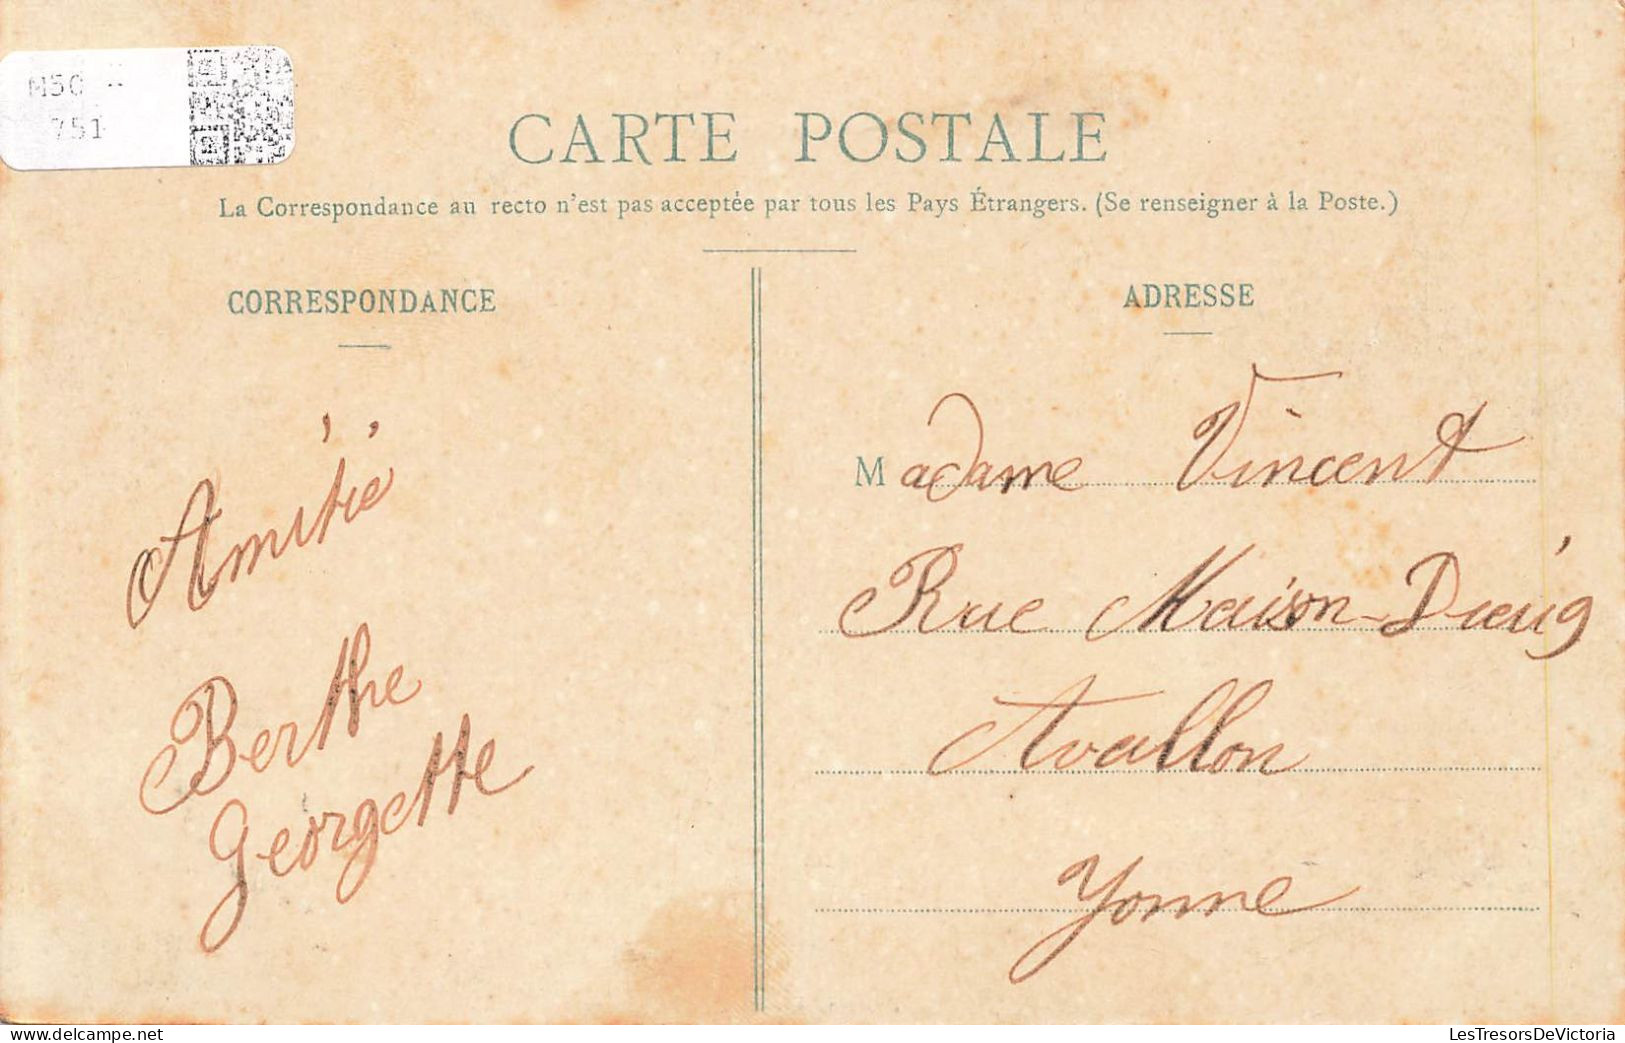 M50 -
751
CARTE POSTALE
La Correspondance au recto n'est pas acceptée par tous les Pays Étrangers. (Se renseigner à la Poste.)
CORRESPONDANCE
Amitié
Berthe
Georgette
ADRESSE
Madame Vincent
Rue Maison-Dieu
Avallon
Yonne
www.delcampe.net
LesTresorsDeVictoria